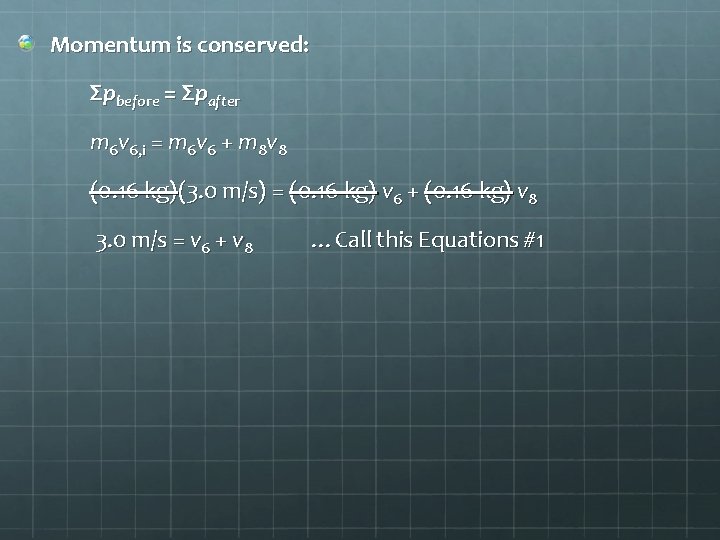 Momentum is conserved:
Σp before = Σp after
m6v6,i = m6v6 + m8v8
(0.16 kg)(3.0 m/s) = (0.16 kg) v6 + (0.16 kg) v8
3.0 m/s = v6 + v8 …Call this Equations #1